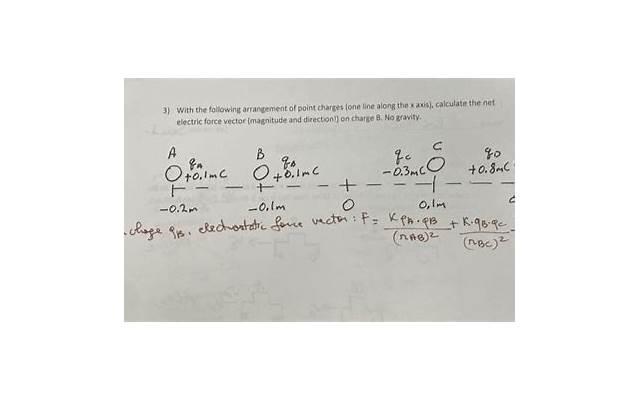 3) With the following arrangement of point charges (one line along the x axis), calculate the net
electric force vector (magnitude and direction!) on charge B. No gravity.
A B C
qA qB qc qD
+0.1mC +0.1mC -0.3mC +0.8mC
-0.2m -0.1m 0 0.1m
charge qB, electrostatic force vector : F = K qA·qB / (rAB)2 + K·qB·qc / (rBC)2